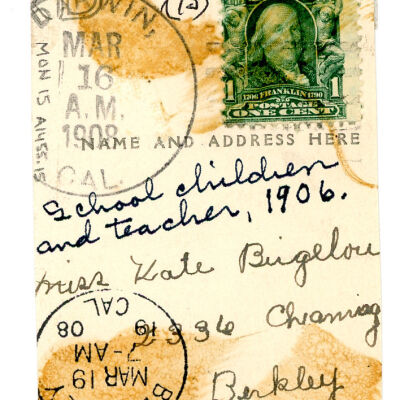 (12)
DARWIN,
MAR
16
A.M.
1908
CAL.
1
1706 FRANKLIN 1790
POSTAGE
ONE CENT
1
NAME AND ADDRESS HERE
School children
and teacher, 1906.
miss Kate Bigelow
2336 Channing
Berkley
CAL
19 08
MAR 19
7-AM